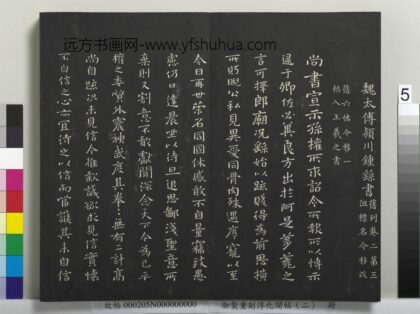 远方书画网-www.yfshuhua.com
魏太傅潁川鍾繇書 舊列卷二第三
舊六帖今移一
帖入王羲之書
尚書宣示孫權所求詔令所報所以博示
逮于卿佐必冀良方出於阿是芻蕘之
言可擇郎廟況繇始以疏賤得為前恩橫
所盻睨公私見異愛同骨肉殊遇厚寵以至
今日再世榮名同國休慼敢不自量竊致愚
慮仍日達晨坐以待旦退思鄙淺聖意所
棄則又割意不敢獻聞深念天下今為已平
權之委質外震神武度其拳拳無有二計高
尚自疏況未見信今推款誠欲求見信實懷
不自信之心亦宜待之以信而當護其未自信
5
故帖000205N000000000
御製重刻淳化閣帖(二) 冊